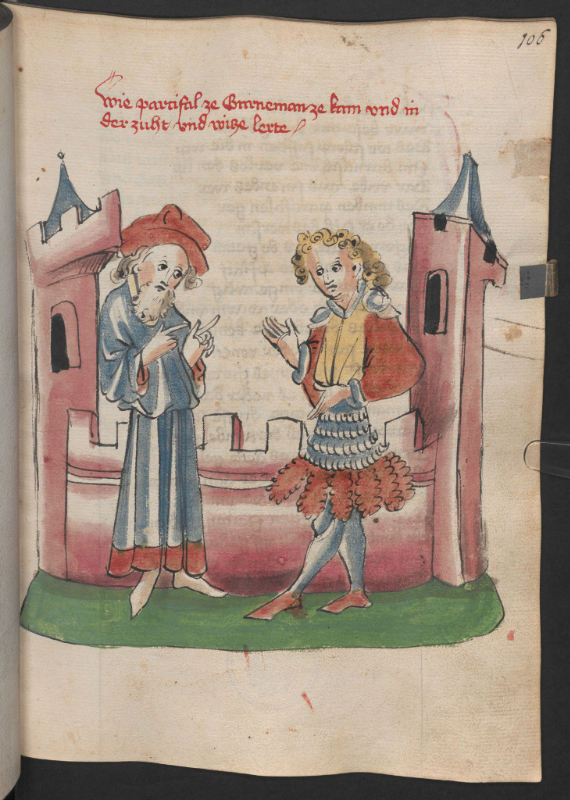 106
wie partifal ze Gurnemanze kam vnd in
der zuht vnd witze lerte